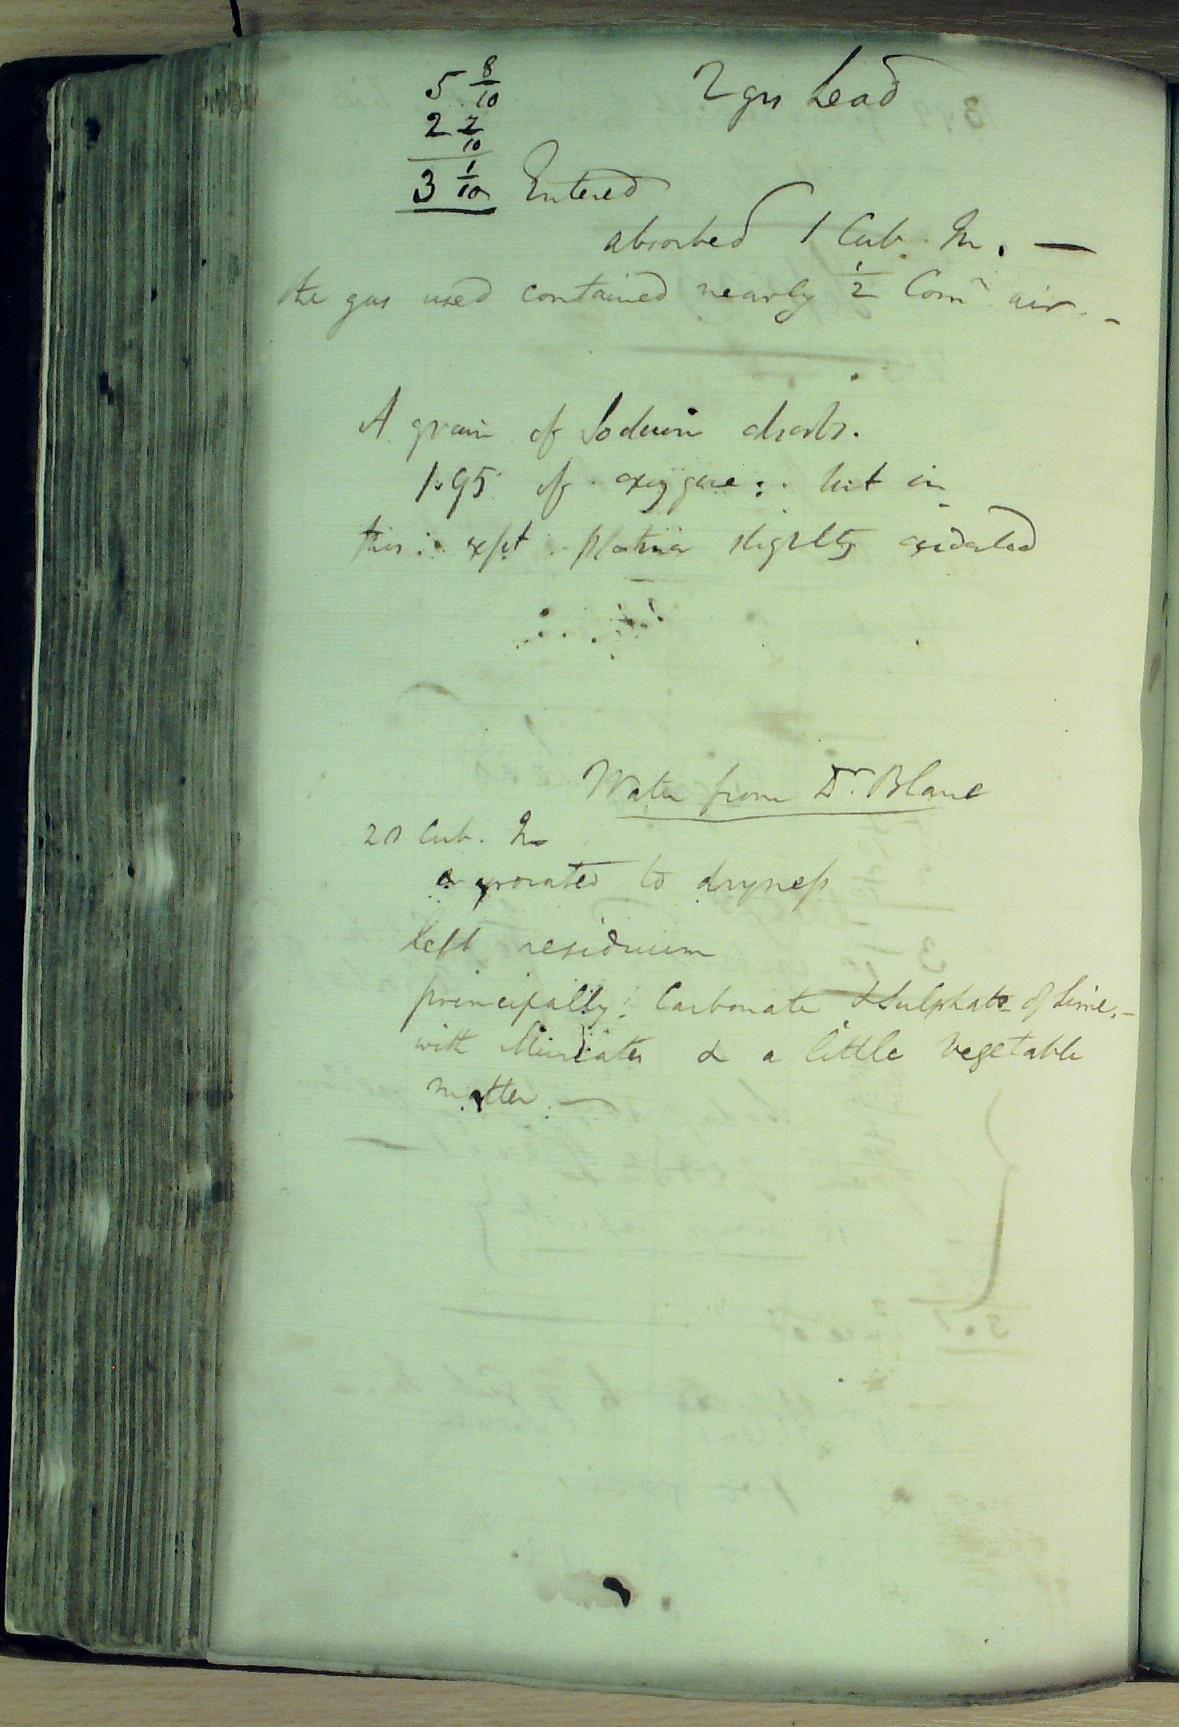 5 8/10
2 7/10
3 1/10 Entered
2 grs Lead
absorbed 1 Cub. In. —
the gas used contained nearly 1/2 Comn air. -
A grain of Sodium absorbs.
1.95 of oxygene: but in
this expt platina slightly oxidated
Water from Dr. Blane
20 Cub. In
evaporated to dryness
left residuum
principally Carbonate & Sulphate of lime. -
with Muriates & a little vegetable
matter —